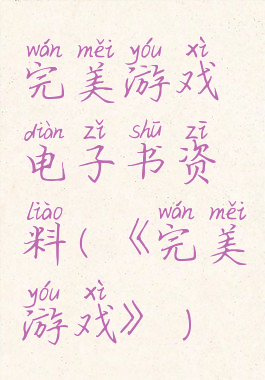 wán měi yóu xì
完美游戏
diàn zǐ shū zī
电子书资
liào wán měi
料(《完美
yóu xì
游戏》)